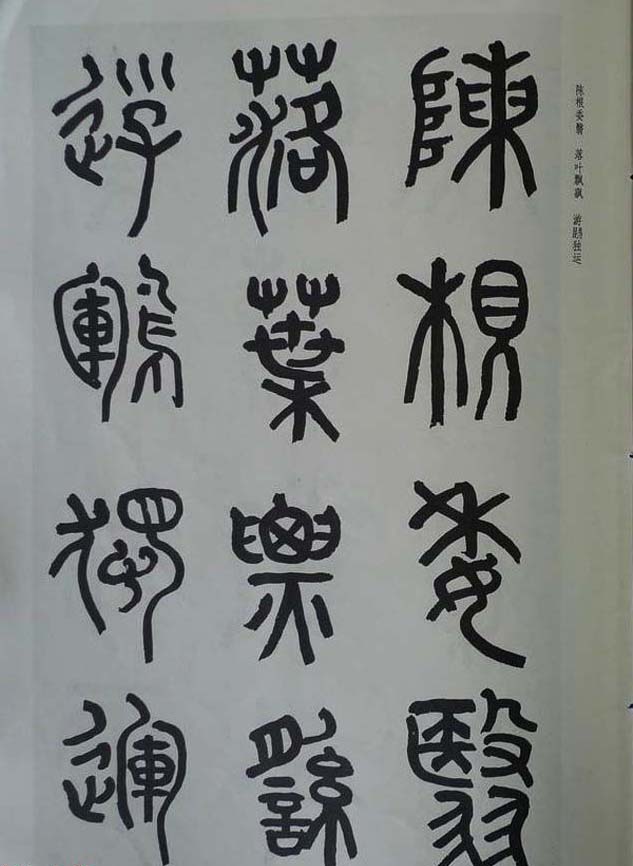 陈根委翳　落叶飘飖　游鹍独运
陳根委翳
落葉票繇
遊鶤獨運